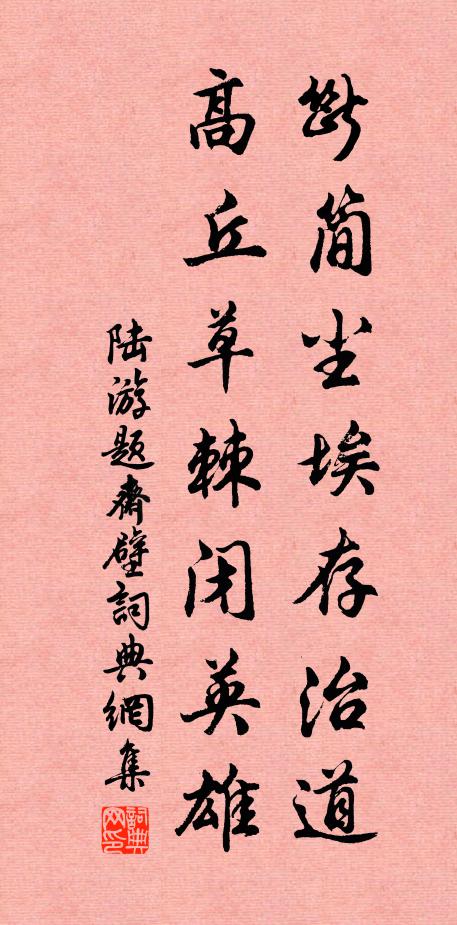 断简尘埃存治道
高丘草棘闭英雄
陆游题斋壁词典網集
詞典网印